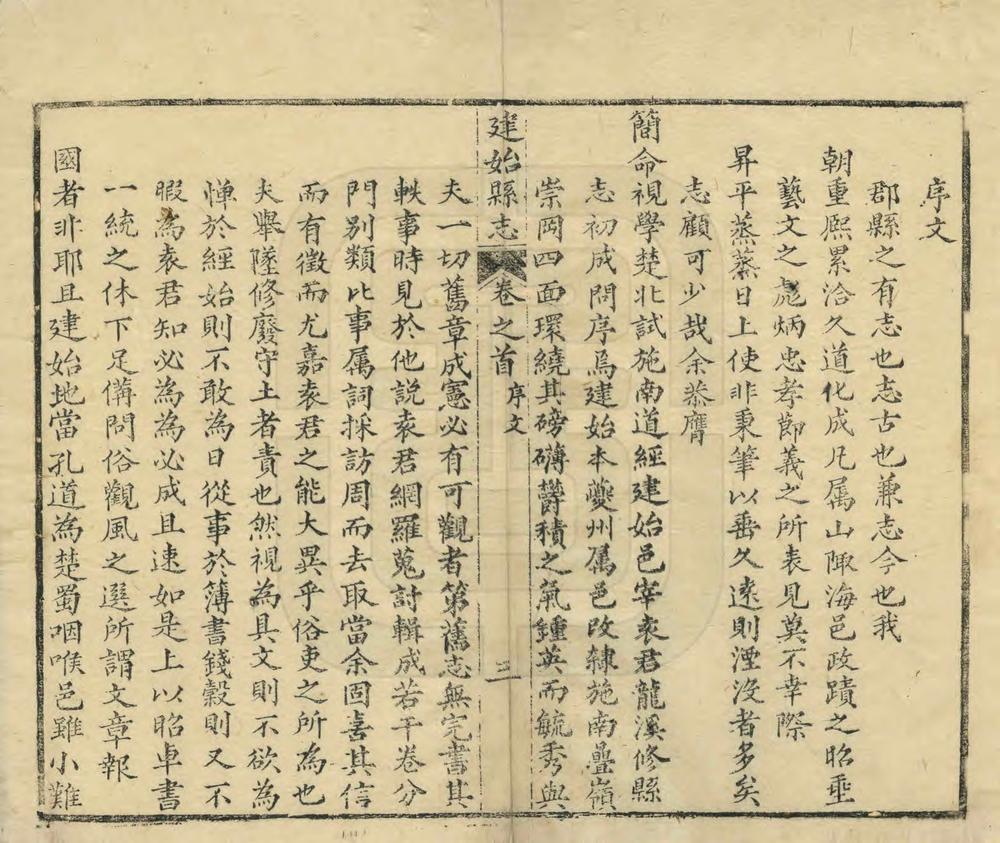 序文
郡縣之有志也志古也兼志今也我
朝重熙累洽久道化成凡属山陬海邑政蹟之昭垂
藝文之彪炳忠孝節義之所表見莫不幸際
昇平蒸蒸日上使非秉筆以垂久遠則湮沒者多矣
志顧可少哉余恭膺
簡命視學楚北試施南道經建始邑宰袁君龍溪修縣
志初成問序焉建始本夔州属邑改隸施南疊嶺
崇岡四面環繞其磅礴欝積之氣鍾英而毓秀與
建始縣志 卷之首 序文 三
夫一切舊章成憲必有可觀者第舊志無完書其
軼事時見於他說袁君網羅蒐討輯成若干卷分
門别類比事属詞採訪周而去取當余固喜其信
而有徵而尤嘉袁君之能大異乎俗吏之所為也
夫舉墜修廢守土者責也然視為具文則不欲為
憚於經始則不敢為日從事於簿書錢穀則又不
暇為袁君知必為為必成且速如是上以昭卓書
一統之休下足備問俗觀風之選所謂文章報
國者非耶且建始地當孔道為楚蜀咽喉邑雖小難